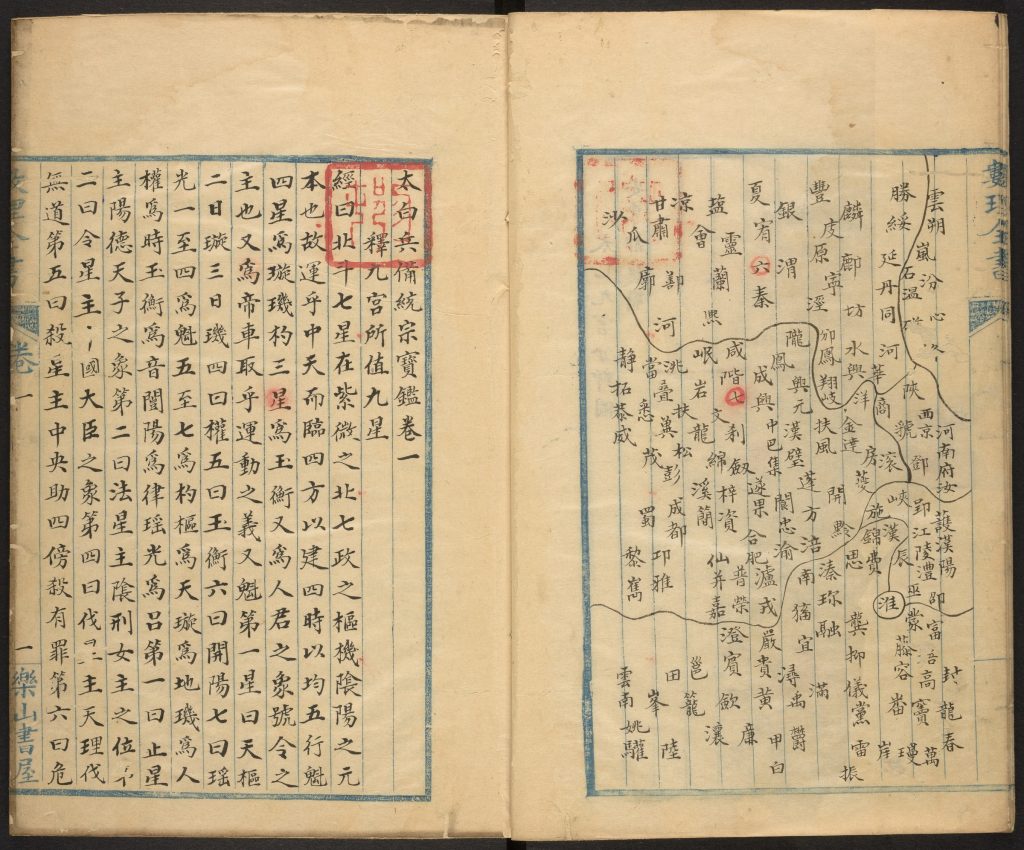 數理全書
雲朔
嵐汾
勝綏延丹同河華商虢
石溫
陝西京鄧郢江陵澧
河南府汝
護漢陽
麟鄜坊水興洋
滾峽漢辰
巫黎藤容番
卲富浯高竇萬
封龍春
豐皮原寧涇
邠鳳翔岐扶風
金達房夔施錦費
淮
龔柳儀黨雷振
岸
銀渭
隴鳳興元漢壁蓬方涪南
開黔思
溱珎融滿
夏宥六秦
成興中巴集閬忠渝
宜潯禹鬱
鹽會靈蘭
咸階七文利劔遂果合肥瀘戎嚴貴黃甲白
涼鄯
岷岩龍綿梓資
普榮澄賓歛廉
甘肅河洮疊
扶松溪簡仙井嘉
邕籠瀼
沙瓜廓
當悉茂彭成都卭雅
田峯陸
靜拓恭威
蜀黎嶲
雲南姚驩
太白兵備統宗寶鑑卷一
釋九宮所值九星
經曰北斗七星在紫微之北七政之樞機陰陽之元
本也故運乎中天而臨四方以建四時以均五行魁
四星爲璇璣杓三星爲玉衡又爲人君之象號令之
主也又爲帝車取乎運動之義又魁第一星曰天樞
二曰璇三曰璣四曰權五曰玉衡六曰開陽七曰瑤
光一至四爲魁五至七爲杓樞爲天璇爲地璣爲人
權爲時玉衡爲音闓陽爲律瑤光爲呂第一曰止星
主陽德天子之象第二曰法星主陰刑女主之位
二曰令星主國大臣之象第四曰伐主天理伐
無道第五曰殺星主中央助四傍殺有罪第六曰危
卷一
一
樂山書屋